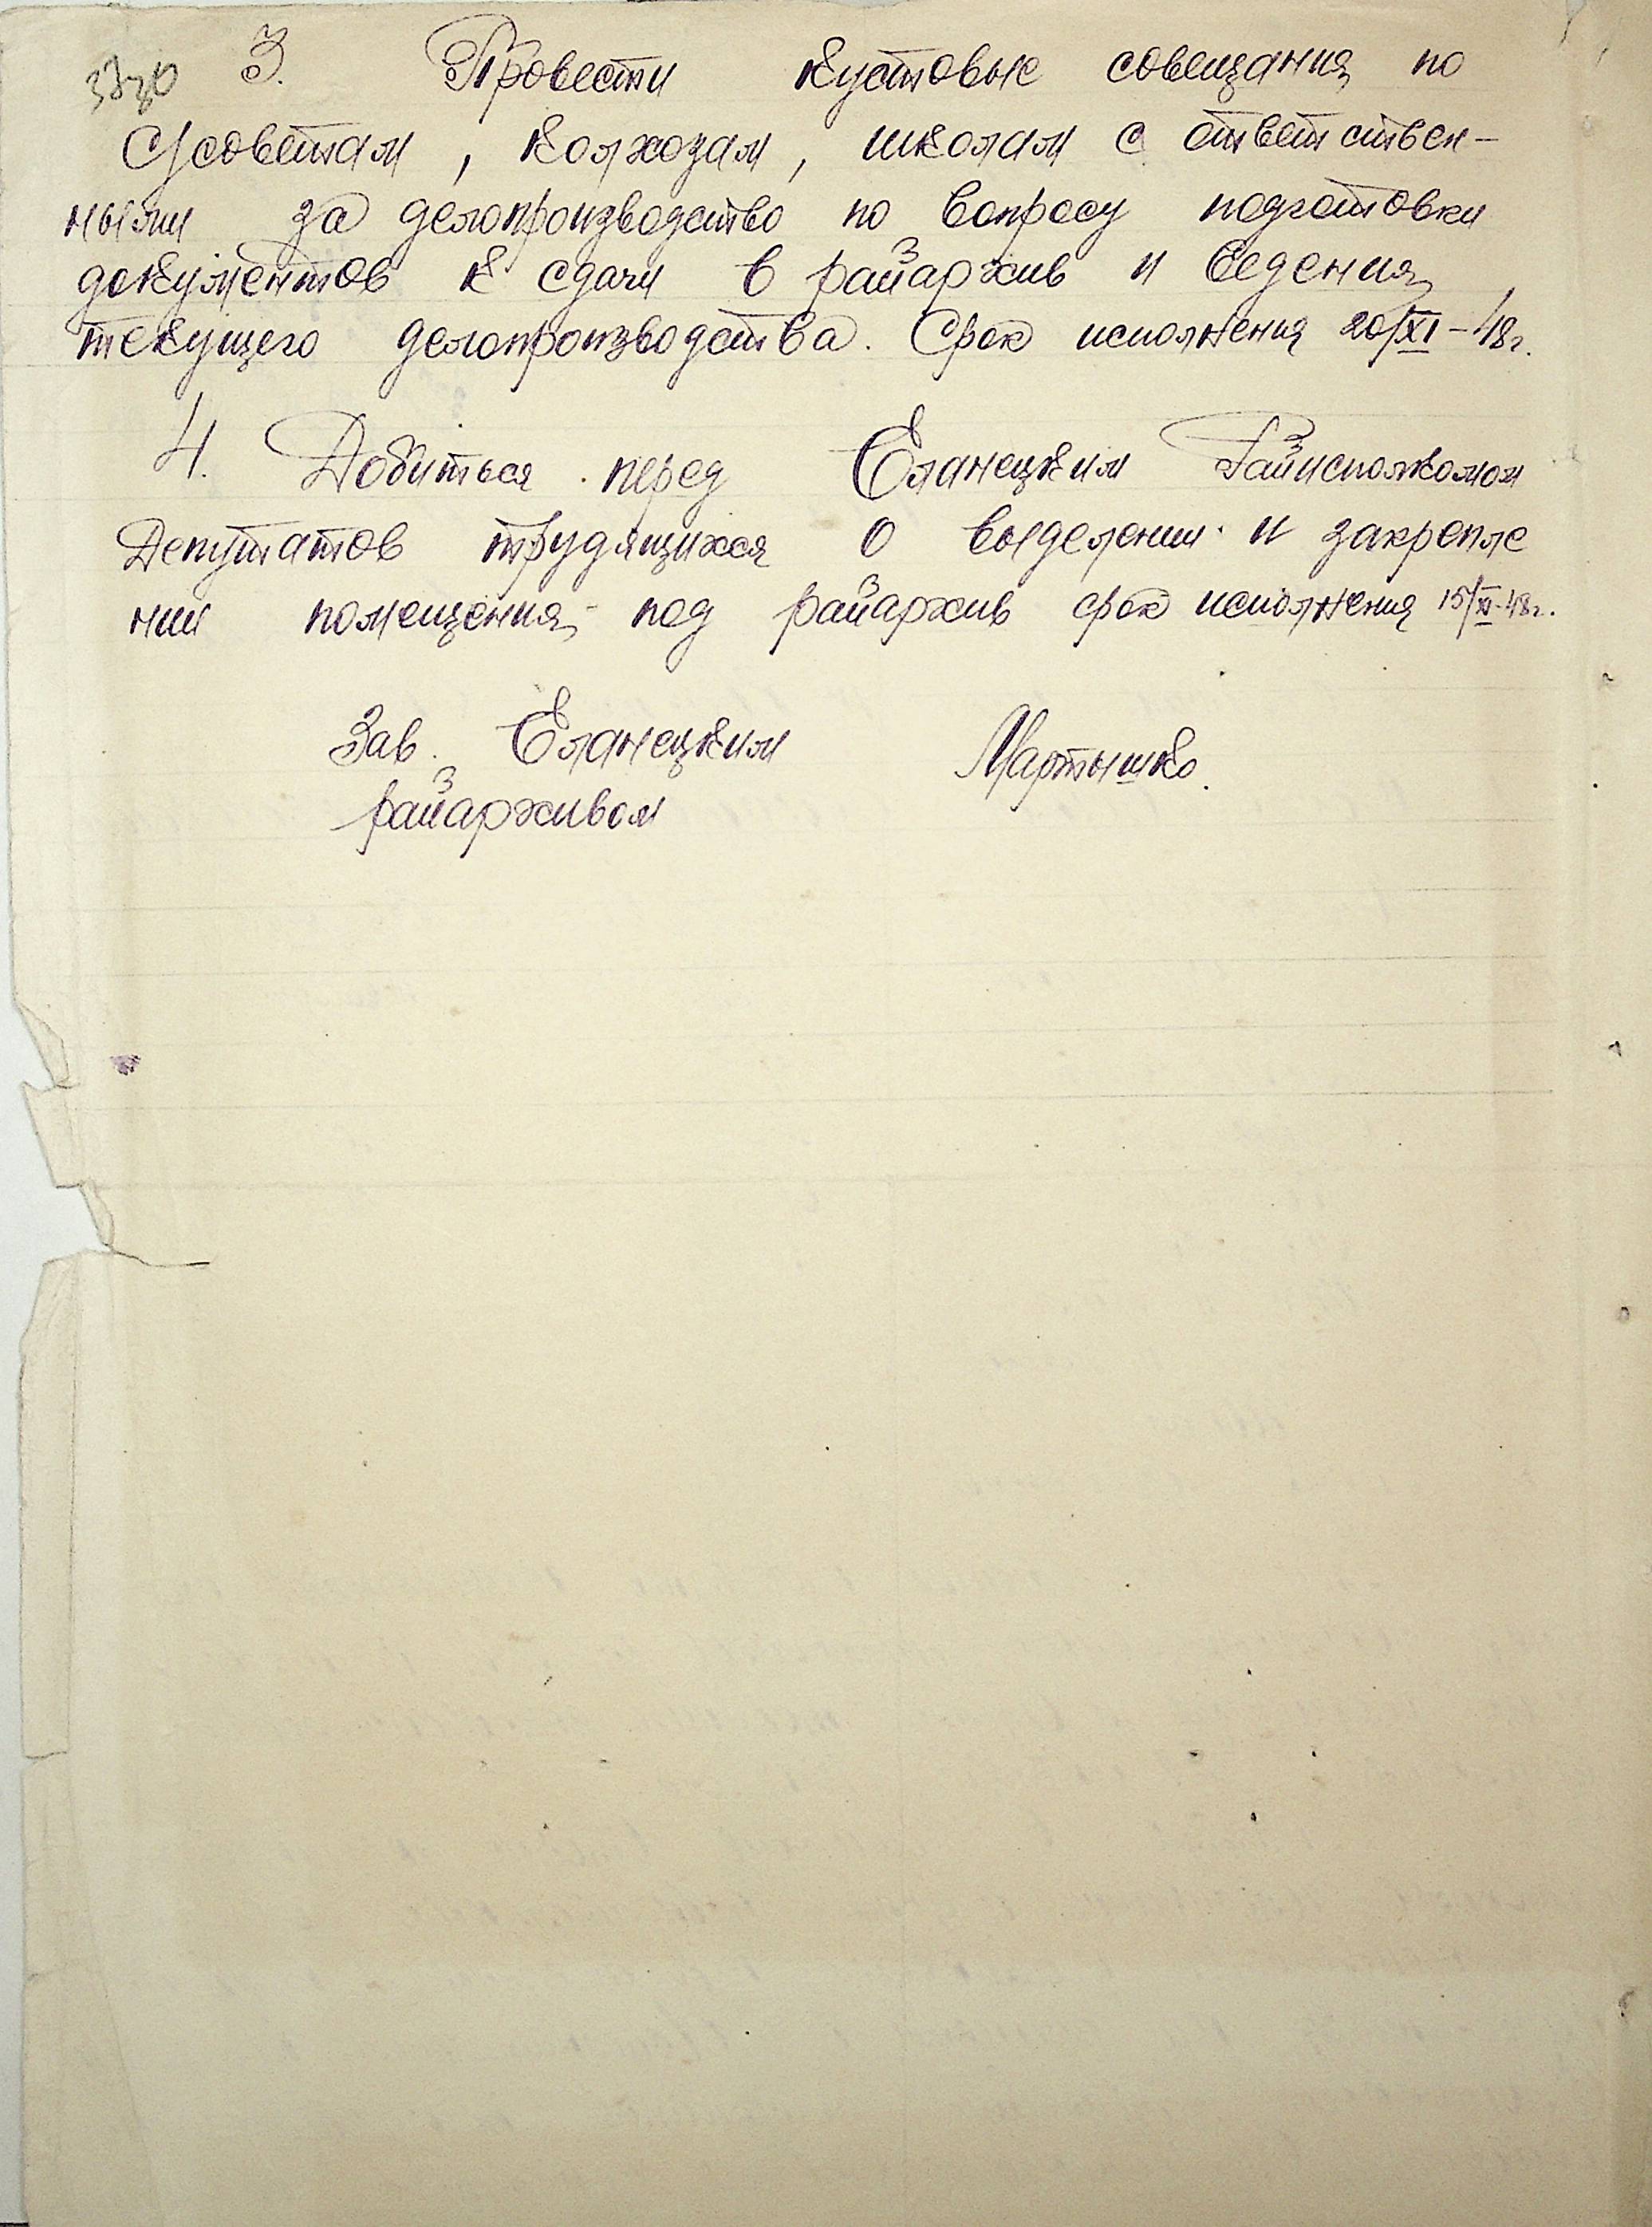 3. Провести кустовые совещания по
С/советам, колхозам, школам с ответствен-
ными за делопроизводство по вопросу подготовки
документов к сдачи в райархив и ведения
текущего делопроизводства. Срок исполнения 20/XI-48г.
4. Добиться перед Еланецким Райисполкомом
Депутатов трудящихся о выделении и закрепле
нии помещения под райархив срок исполнения 15/XI-48г.
Зав. Еланецким Мартышко.
райархивом